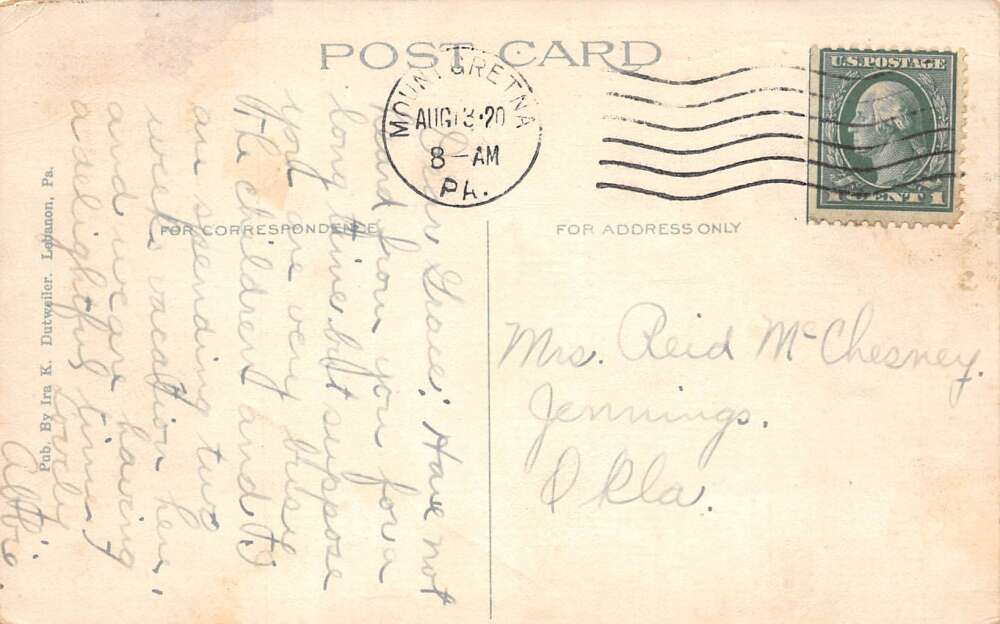 POST CARD
MOUNT GRETNA
AUG 13·20
8–AM
PA.
U.S. POSTAGE
1 CENT 1
FOR CORRESPONDENCE
FOR ADDRESS ONLY
Dear Grace: Have not
heard from you for a
long time but suppose
you are very busy
The children and I
are spending two
weeks vacation here,
and we are having
a delightful time,
Lovely
Abbie.
Mrs. Reid McChesney.
Jennings.
Okla.
Pub. By Ira K. Dutweiler. Lebanon, Pa.